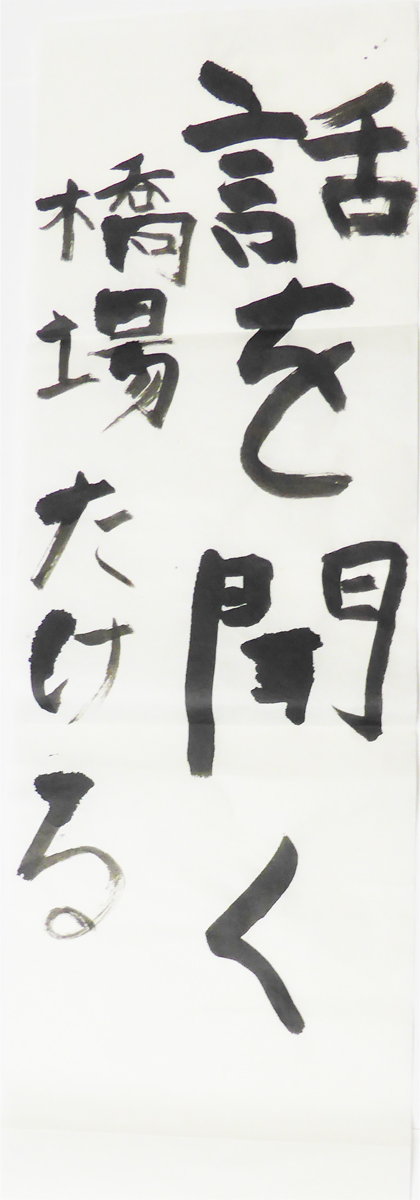 話を聞く
橋場たける